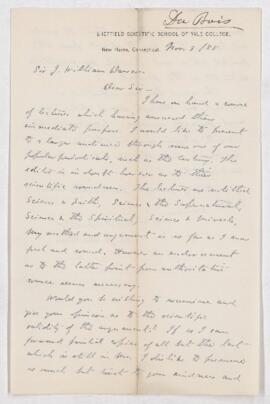 Du Bois
SHEFFIELD SCIENTIFIC SCHOOL OF YALE COLLEGE.
New Haven, Connecticut, Nov. 3 /88
Sir J. William Dawson
Dear Sir
I have on hand a course
of lectures which having answered their
immediate purpose I would like to present
to a larger audience through some one of our
popular periodicals, such as the Century. The
editor is in doubt however as to their
scientific soundness. The lectures are entitled
Science & Faith, Science & the Supernatural,
Science & the Spiritual, Science & Miracle,
My method and argument is so far as I know
new and sound. However an endorsement
as to the latter point from authoritative
source seems necessary.
Would you be willing to examine and
give your opinion as to the scientific
validity of the argument? If so I can
forward printed copies of all but the last
which is still in Mss. I dislike to presume
so much but trust to your kindness and